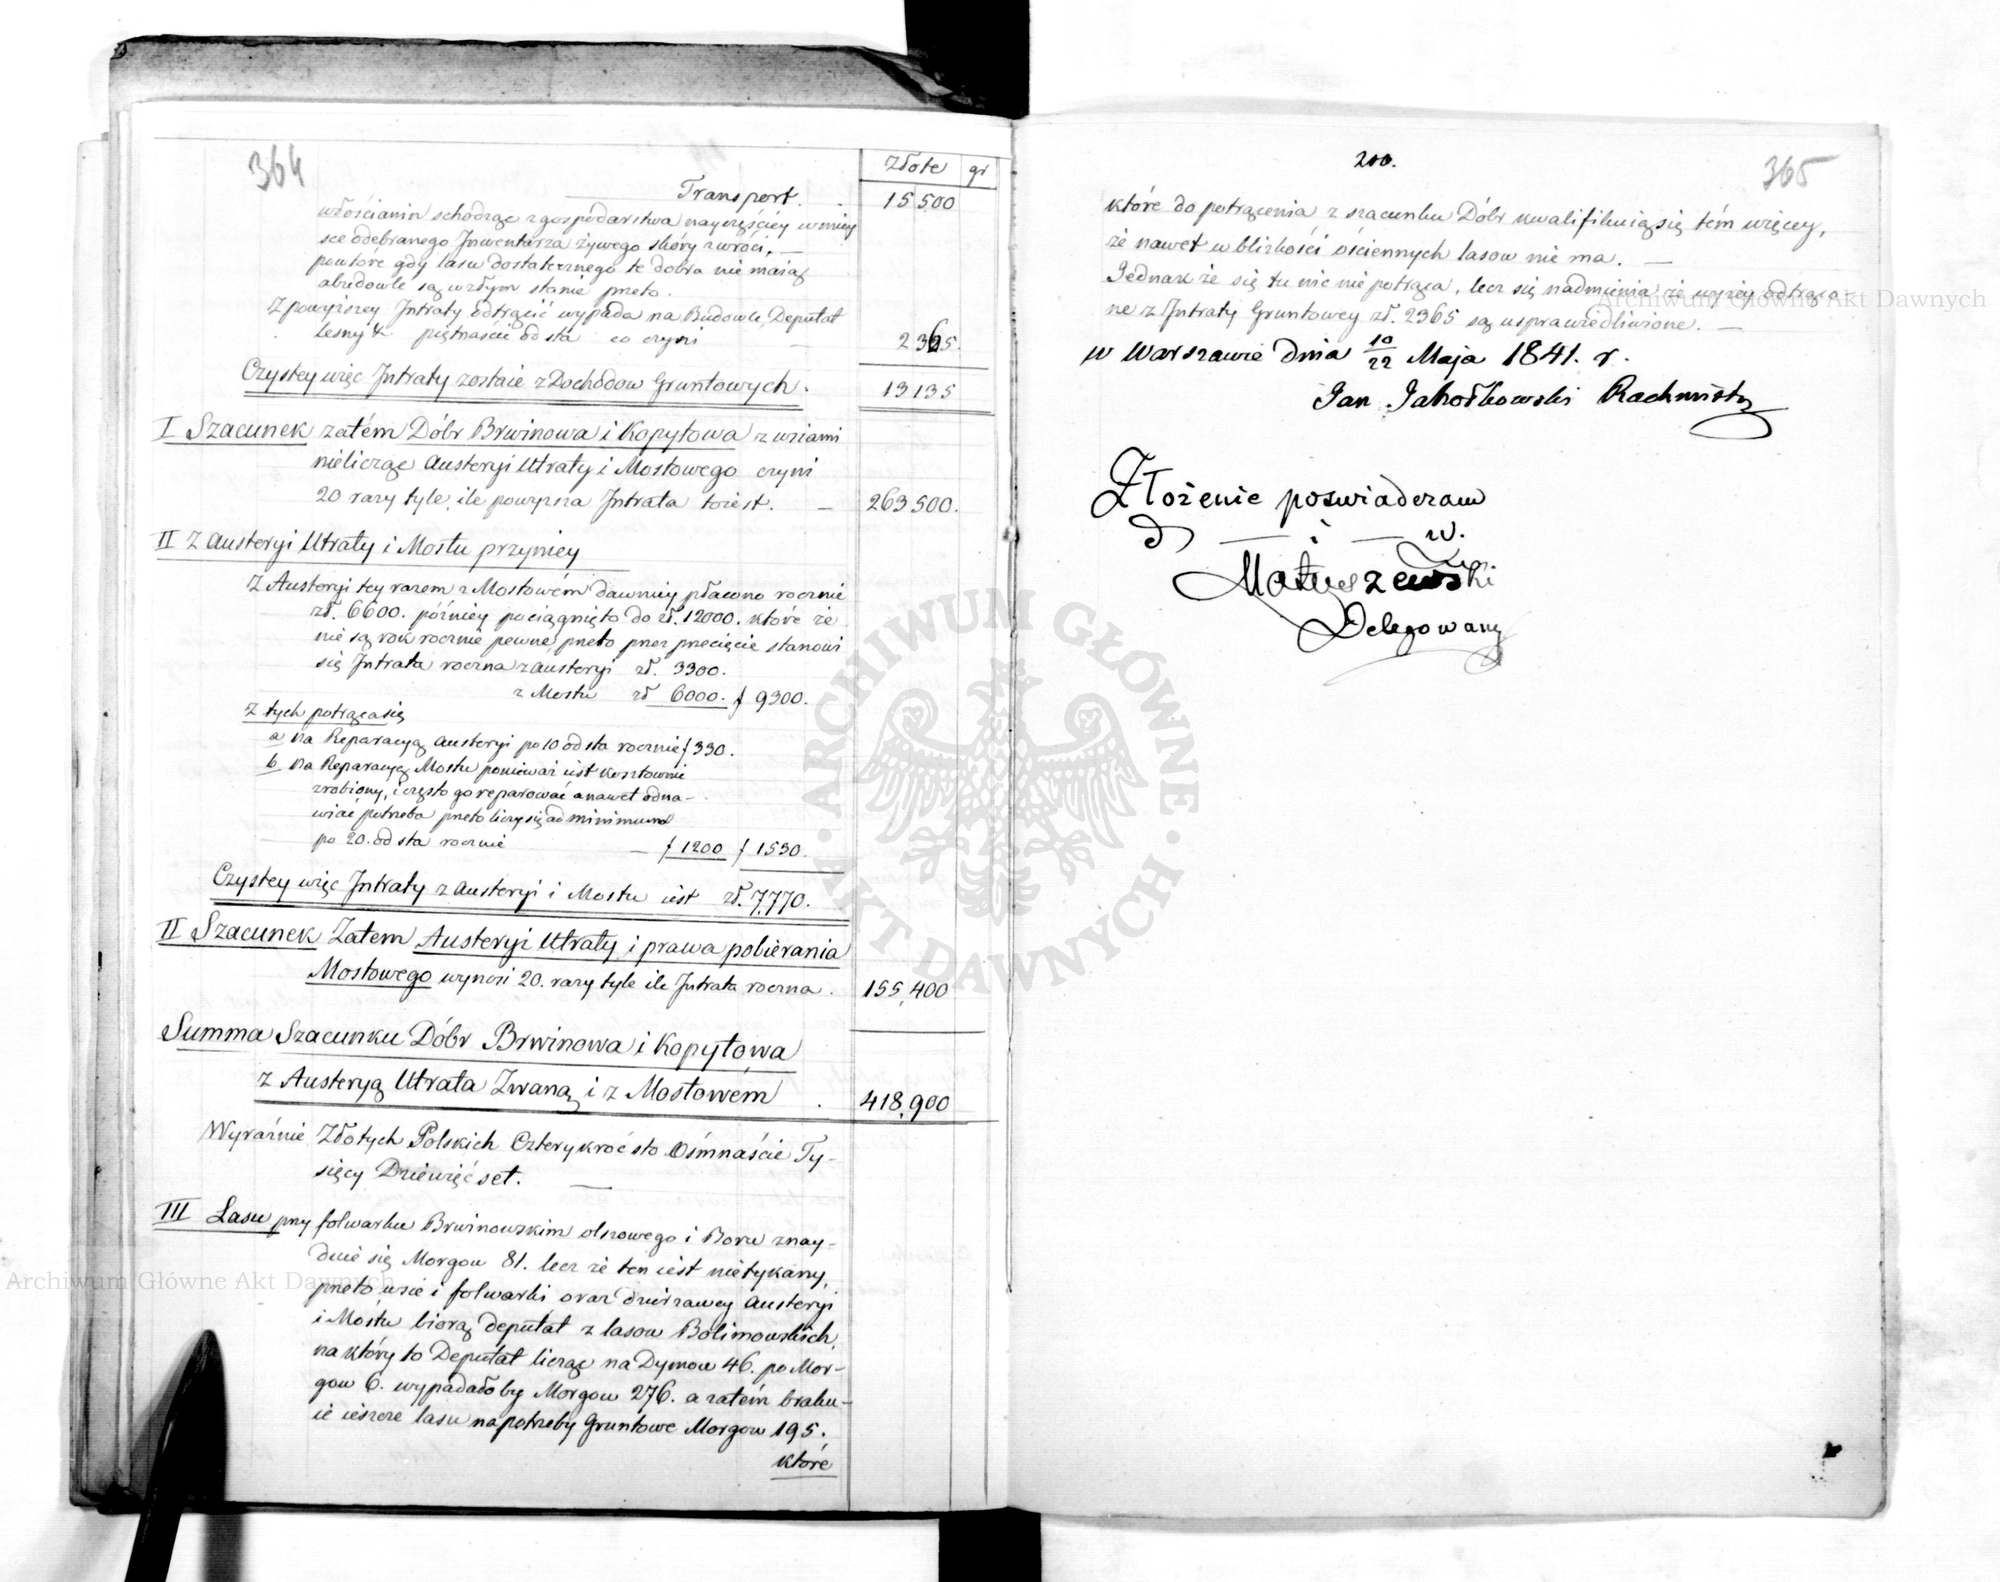 364
Złote gr
Transport. . 15500
włościanin schodząc z gospodarstwa nayczęściey w miey
sce odebranego Inwentarza żywego skóry zwróci, —
powtóre gdy lasu dostatecznego te dobra nie maią
abudowle są w złym stanie przeto.
Z powyższey Intraty odtrącić wypada na Budowle, Deputat
lesny & piętnaście od sta co czyni — 2365.
Czystey więc Intraty zostaie z Dochodow Gruntowych. 13135
I Szacunek zatém Dóbr Brwinowa i Kopytowa z wsiami
nielicząc Austeryi Utraty i Mostowego czyni
20 razy tyle, ile powyższa Intrata toiest. — 263500.
II Z Austeryi Utraty i Mostu przyniey
Z Austeryi tey razem z Mostowém dawniey płacono rocznie
zł. 6600. późniey pociągnięto do zł. 12000. które że
nie są rok rocznie pewne, przeto przez przecięcie stanowi
się Intrata roczna z austeryi zł. 3300.
z Mostu zł 6000. f 9300.
Z tych potrąca się
a na Reparacyą austeryi po 10 od sta rocznie f 330.
b na Reparacyą Mostu ponieważ iest kosztownie
zrobiony, i często go reparować a nawet odna-
wiać potrzeba przeto liczy się ad minimum
po 20. od sta rocznie — f 1200 f 1530.
Czystey więc Intraty z austeryi i Mostu iest zł. 7,770.
II Szacunek Zatem Austeryi Utraty i prawa pobierania
Mostowego wynosi 20. razy tyle ile Intrata roczna. 155,400
Summa Szacunku Dóbr Brwinowa i Kopytowa
z Austeryą Utrata Zwaną i z Mostowém . 418,900
Wyraźnie Złotych Polskich Czterykroć sto Ośmnaście Ty-
sięcy Dziewięć set. —
III Lasu przy folwarku Brwinowskim olszowego i Boru znay-
duie się Morgow 81. lecz że ten iest nietykany,
przeto wsie i folwarki oraz dzierzawcy austeryi
i Mostu biorą deputat z lasow Bolimowskich,
na który to Deputat licząc na Dymow 46. po Mor-
gow 6. wypadałoby Morgow 276. a zatém braku-
ie ieszcze lasu na potrzeby Gruntowe Morgow 195.
które
200.
365
które do potrącenia z szacunku Dóbr kwalifikuią się tém więcey,
że nawet w blizkości ościennych lasow nie ma. —
Jednak że się tu nic nie potrąca, lecz się nadmienia że wyżey odtrąco
ne z Intraty Gruntowey zł. 2365 są usprawiedliwione. —
w Warszawie dnia 10/22 Maja 1841. r.
Jan Jabołkowski Rachmistrz
Złożenie poswiadczam
d — i — w.
Matuszewski
Delegowany
ARCHIWUM GŁÓWNE · AKT DAWNYCH ·
Archiwum Główne Akt Dawnych
Archiwum Główne Akt Dawnych